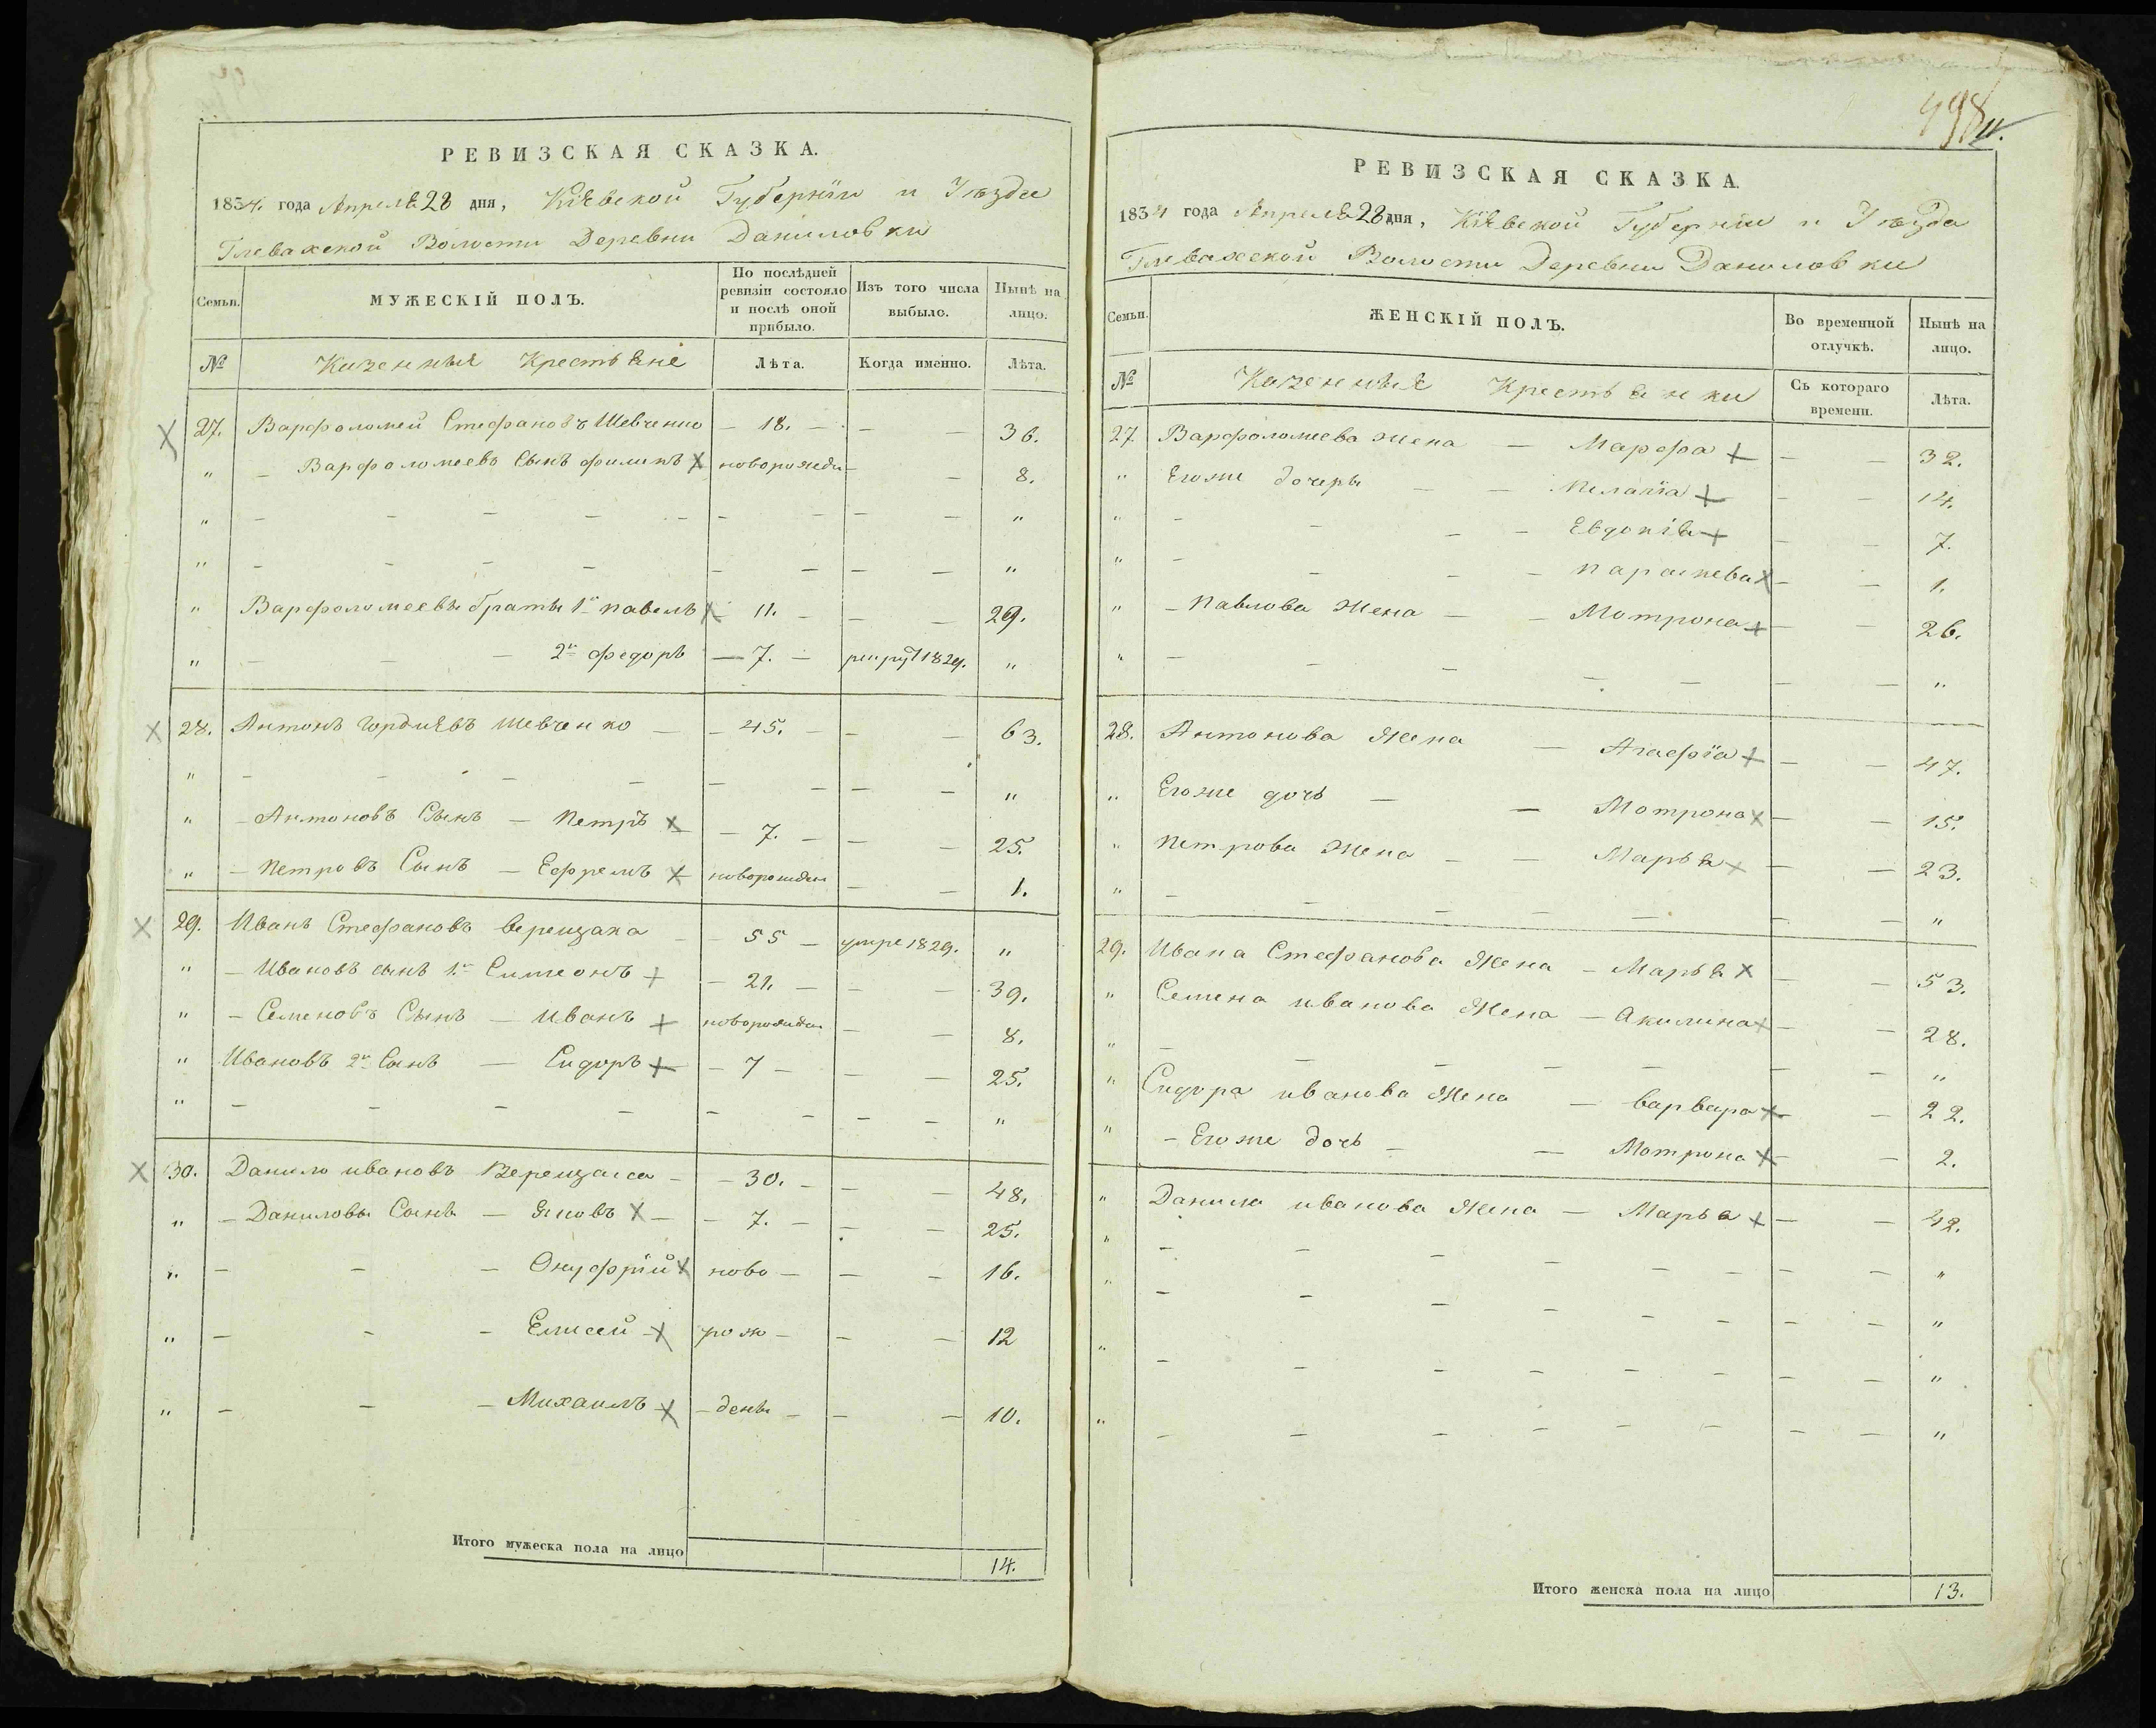 РЕВИЗСКАЯ СКАЗКА.
1834. года Апреля 28 дня, Кіевской Губерніи и Уезда
Глевахской Волости Деревни Даниловки
Семьи. МУЖЕСКІЙ ПОЛЪ. По послѣдней ревизіи состояло и послѣ оной прибыло. Изъ того числа выбыло. Нынѣ на лицо.
№ Казенныя Крестьяне Лѣта. Когда именно. Лѣта.
27. Варфоломей Стефановъ Шевченко — 18. — — — 36.
" — Варфоломеевъ Сынъ Филипъ новорожден — — 8.
" — — — — — — — — — "
" — — — — — — — — "
" Варфоломеевы браты 1й Павелъ 11. — — — 29.
" — — — 2й Федоръ — 7. — рекрут 1829. "
28. Антонъ Гордіевъ Шевченко — — 45. — — — 63.
" — — — — — — — — "
" — Антоновъ Сынъ — Петръ — 7. — — — 25.
" — Петровъ Сынъ — Ефремъ новорожден — — 1.
29. Иванъ Стефановъ Верещака — — 55 — умре 1829. "
" — Ивановъ сынъ 1й Симеонъ — 21. — — — 39.
" — Семеновъ Сынъ — Иванъ новорожден — — 8.
" Ивановъ 2й Сынъ — Сидоръ — 7 — — — 25.
" — — — — — — — — "
30. Данило ивановъ Верещака — — 30. — — — 48.
" — Даниловы Сыны — Яковъ — — 7. — — — 25.
" — — — Онуфрій ново — — — 16.
" — — — Елисей рож — — — 12
" — — — Михаилъ — дены — — — 10.
Итого мужеска пола на лицо 14.
498
РЕВИЗСКАЯ СКАЗКА.
1834 года Апреля 28 дня, Кіевской Губерніи и Уезда
Глевахской Волости Деревни Даниловки
Семьи. ЖЕНСКІЙ ПОЛЪ. Во временной отлучкѣ. Нынѣ на лицо.
№ Казенныя Крестьянки Съ котораго времени. Лѣта.
27 Варфоломеева жена — Марфа — — 32.
" Егоже дочеры — — Меланіа — — 14.
" — — — — Евдокія — — 7.
" — — — — Параскева — — 1.
" — Павлова Жена — — Мотрона — — 26.
" — — — — — — — "
28. Антонова Жена — Агафіа — — 47.
" Егоже дочь — — Мотрона — — 15.
" Петрова Жена — — Марья — — 23.
" — — — — — — — "
29. Ивана Стефанова Жена — Марья — — 53.
" Семена иванова Жена — Акилина — — 28.
" — — — — — — — "
" Сидора иванова Жена — Варвара — — 22.
" — Егоже дочь — — Мотрона — — 2.
" Данила иванова Жена — Марья — — 42.
" — — — — — — — — "
" — — — — — — — — "
" — — — — — — — — "
" — — — — — — — — "
Итого женска пола на лицо 13.